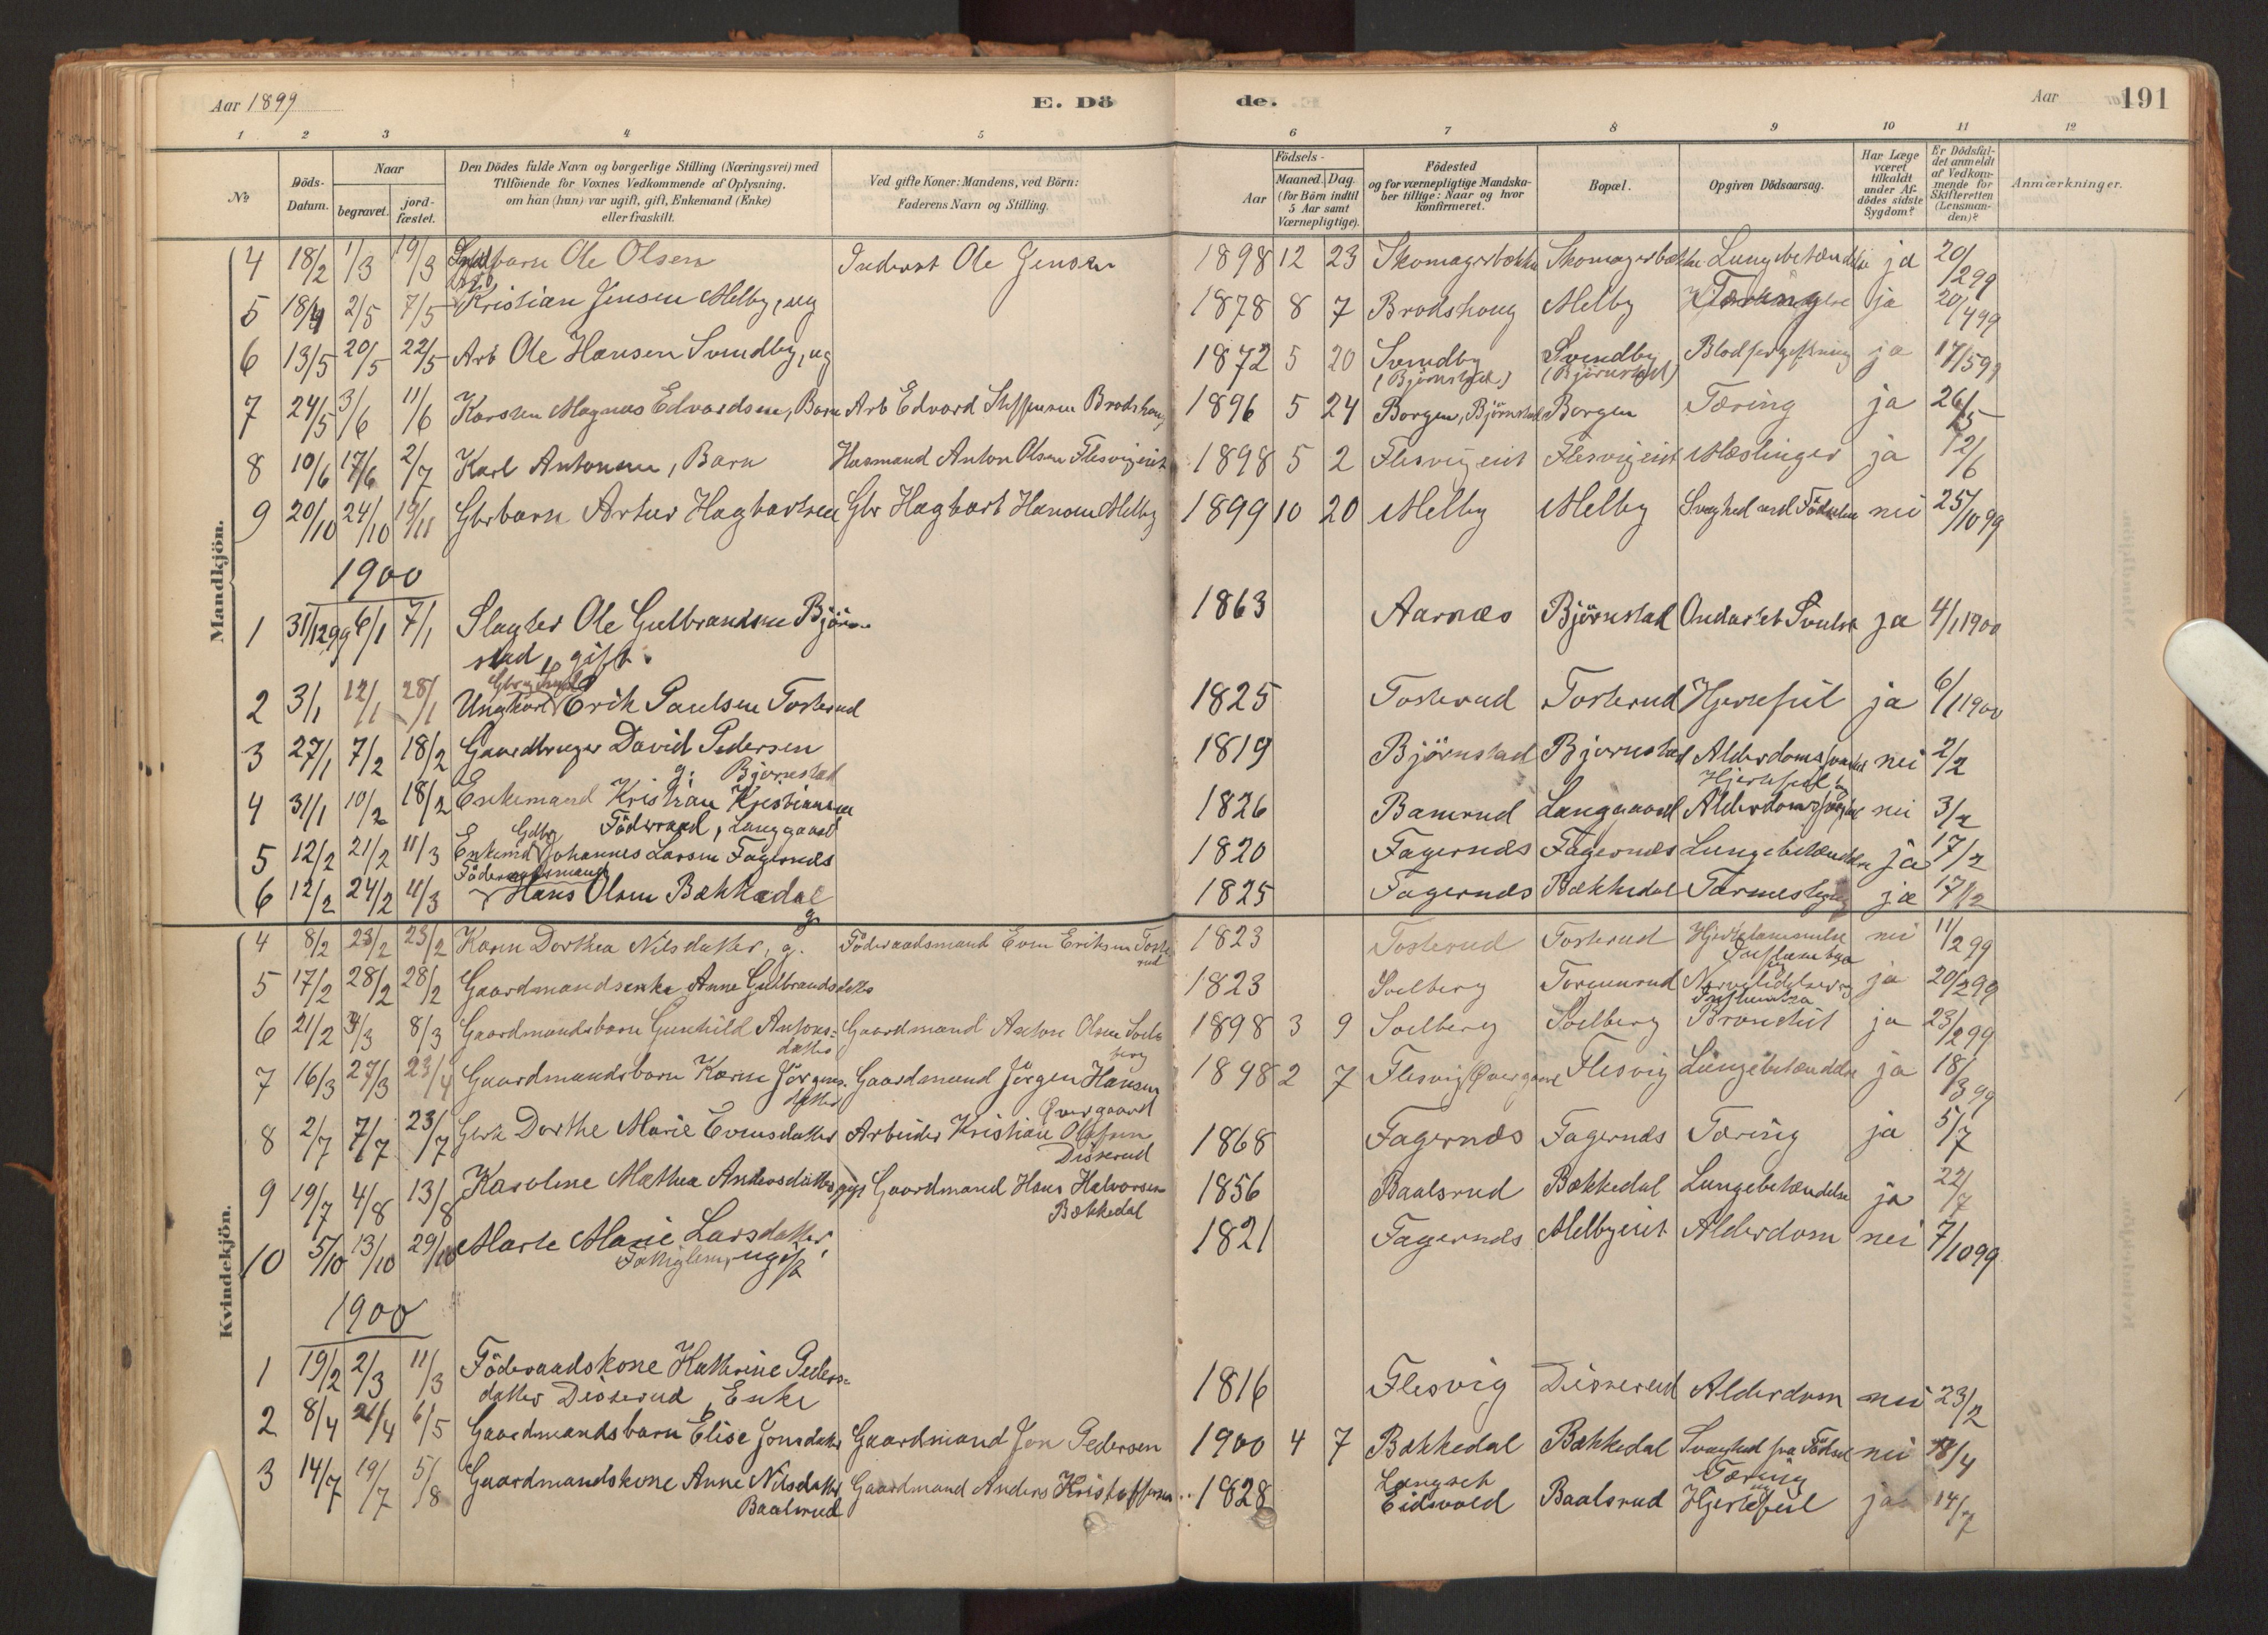 Aar 1899 E. Dö de. Aar 191
1 2 3 4 5 6 7 8 9 10 11 12
№ Döds-Datum. Naar begravet. jordfæstet. Den Dödes fulde Navn og borgerlige Stilling (Næringsvei) med Tilföiende for Voxnes Vedkommende af Oplysning, om han (hun) var ugift, gift, Enkemand (Enke) eller fraskilt. Ved gifte Koner: Mandens, ved Börn: Faderens Navn og Stilling. Födsels- Aar Maaned. Dag. (for Börn indtil 5 Aar samt Værnepligtige). Födested og for værnepligtige Mandskaber tillige: Naar og hvor konfirmeret. Bopæl. Opgiven Dödsaarsag. Har Læge været tilkaldt under Afdödes sidste Sygdom? Er Dödsfaldet anmeldt af Vedkommende for Skifteretten (Lensmanden)? Anmærkninger.
Mandkjön.
4 18/2 1/3 19/3 Ole Olsen Inderst Ole Jensen 1898 12 23 Skomagerbakken Skomagerbakken Lungebetændelse ja 20/2 99
5 18/4 2/5 7/5 Kristian Jensen Melby, ug 1878 8 7 Brodshoug Melby Tæring ja 20/4 99
6 13/5 20/5 22/5 Arb Ole Hansen Svendby, ug 1872 5 20 Svendby (Björnstad) Svendby (Björnstad) Blodforgiftning ja 17/5 99
7 24/5 3/6 11/6 Karsten Magnus Edvardsen, Barn Arb Edvard Steffensen Brodshoug 1896 5 24 Borgen, Björnstad Borgen Tæring ja 26/5
8 10/6 17/6 2/7 Karl Antonsen, Barn Husmand Anton Olsen Flesvigeiet 1898 5 2 Flesvigeiet Flesvigeiet Mæslinger ja 12/6
9 20/10 24/10 19/11 Gbrbarn Artur Hagbartsen Gbr Hagbart Hansen Melby 1899 10 20 Melby Melby Svaghed ved Födselen nei 25/10 99
1900
1 31/12 99 6/1 7/1 Slagter Ole Gulbrandsen Björnstad, gift. 1863 Aarnæs Björnstad Ondartet Svulst ja 4/1 1900
2 3/1 12/1 28/1 Ungkarl Erik Paulsen Tosterud 1825 Tosterud Tosterud Hjertefeil ja 6/1 1900
3 27/1 7/2 18/2 Gaardbruger David Pedersen g. Bjørnstad 1819 Björnstad Bjørnstad Alderdomssvaghed nei 2/2
4 31/1 10/2 18/2 Enkemand Kristian Kristiansen Föderaad, Langgaard 1826 Bamrud Langgaard Hjertefeil, Alderdomssvaghed nei 3/2
5 12/2 21/2 11/3 Enkemd Gdbr Johannes Larsen Fagernæs 1820 Fagernæs Fagernæs Lungebetændelse ja 17/2
6 12/2 24/2 11/3 Föderaadsmand Hans Olsen Bækkedal g. 1825 Fagernæs Bækkedal ja 17/2
Kvindekjön.
4 8/2 23/2 23/2 Karen Dorthea Nilsdatter, g. Föderaadsmand Even Eriksen Tosterud 1823 Tosterud Tosterud Hjertelammelse nei 11/2 99
5 17/2 28/2 28/2 Gaardmandsenke Anne Gulbrandsdatter 1823 Soelberg Torgunrud Influentsa og Nervelidelse ja 20/2 99
6 21/2 3/3 8/3 Gaardmandsbarn Gunhild Antonsdatter Gaardmand Anton Olsen Soelberg 1898 3 9 Soelberg Soelberg Influentsa Bronchit ja 23/2 99
7 16/3 27/3 23/4 Gaardmandsbarn Karen Jörgensdatter Gaardmand Jörgen Hansen Øvergaard 1898 2 7 Flesvig Øvergaard Flesvig Lungebetændelse ja 18/3 99
8 2/7 7/7 23/7 Dorthe Marie Evensdatter Arbeider Kristian Olafsen Disserud 1868 Fagernæs Fagernæs Tæring ja 5/7
9 19/7 4/8 13/8 Karoline Mathea Andersdatter gift Gaardmand Hans Halvorsen Bækkedal 1856 Baalsrud Bækkedal Lungebetændelse ja 22/7
10 5/10 13/10 29/10 Marte Marie Larsdatter, Fattiglem, ugift 1821 Fagernæs Melbyeiet Alderdom nei 7/10 99
1900
1 19/2 2/3 11/3 Föderaadskone Kathrine Pedersdatter Disserud, Enke 1816 Flesvig Disserud Alderdom nei 23/2
2 8/4 21/4 6/5 Gaardmandsbarn Elise Jonsdatter Gaardmand Jon Pedersen 1900 4 7 Bækkedal Bækkedal Svaghed fra Födsel nei 18/4
3 14/7 19/7 5/8 Gaardmandskone Anne Nilsdatter Baalsrud Gaardmand Anders Kristoffersen 1828 Langseth Eidsvold Baalsrud Tæring og Hjertefeil ja 14/7